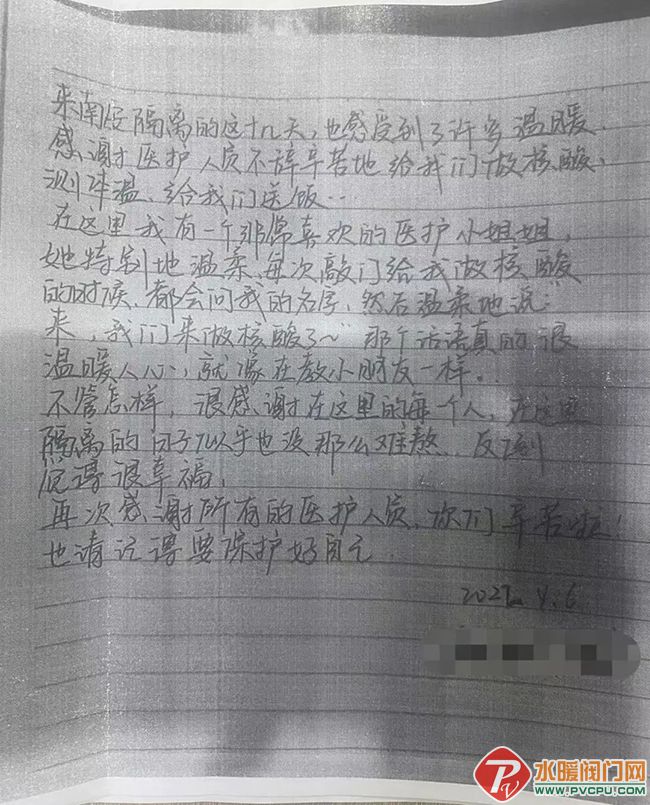 来南安隔离的这十几天，也感受到了许多温暖.
感谢医护人员不辞辛苦地给我们做核酸、
测体温、给我们送饭...
在这里我有一个非常喜欢的医护小姐姐，
她特别地温柔、每次敲门给我做核酸
的时候、都会问我的名字，然后温柔地说：
来，我们来做核酸了~" 那个话语真的很
温暖人心，就像在教小朋友一样。
不管怎样，很感谢在这里的每个人，在这里
隔离的日子似乎也没那么难熬，反到
觉得很幸福，
再次感谢所有的医护人员，你们辛苦啦！
也请记得要保护好自己.
2022.4.6
水暖阀门网
WWW.PVCPU.COM